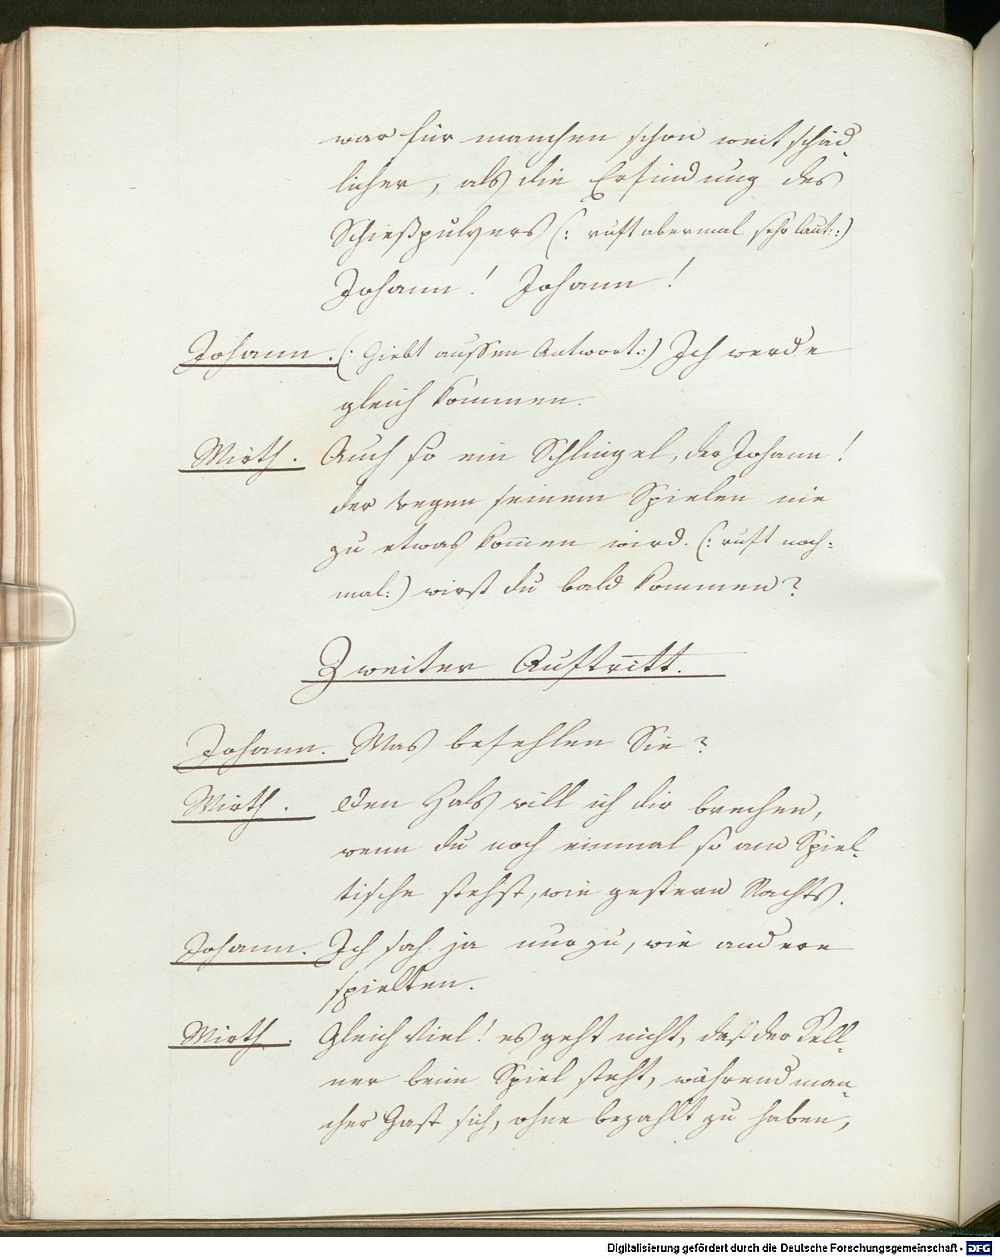 war für manchen schon weit schäd-
licher, als die Erfindung des
Schießpulvers (: ruft abermal sehr laut :)
Johann! Johann!
Johann. (: Giebt aussen Antwort :) Ich werde
gleich kommen.
Wirth. Auch so ein Schlingel, der Johann!
der wegen seinem Spielen nie
zu etwas kommen wird. (: ruft noch=
mal :) wirst du bald kommen?
Zweiter Auftritt.
Johann. Was befehlen Sie?
Wirth. Den Hals will ich dir brechen,
wenn du noch einmal so am Spiel-
tische stehst, wie gestern Nachts.
Johann. Ich sah ja nur zu, wie andere
spielten.
Wirth. Gleich Viel! es geht nicht, daß der Kell-
ner beim Spiel steht, während man-
cher Gast sich, ohne bezahlt zu haben,
Digitalisierung gefördert durch die Deutsche Forschungsgemeinschaft - DFG